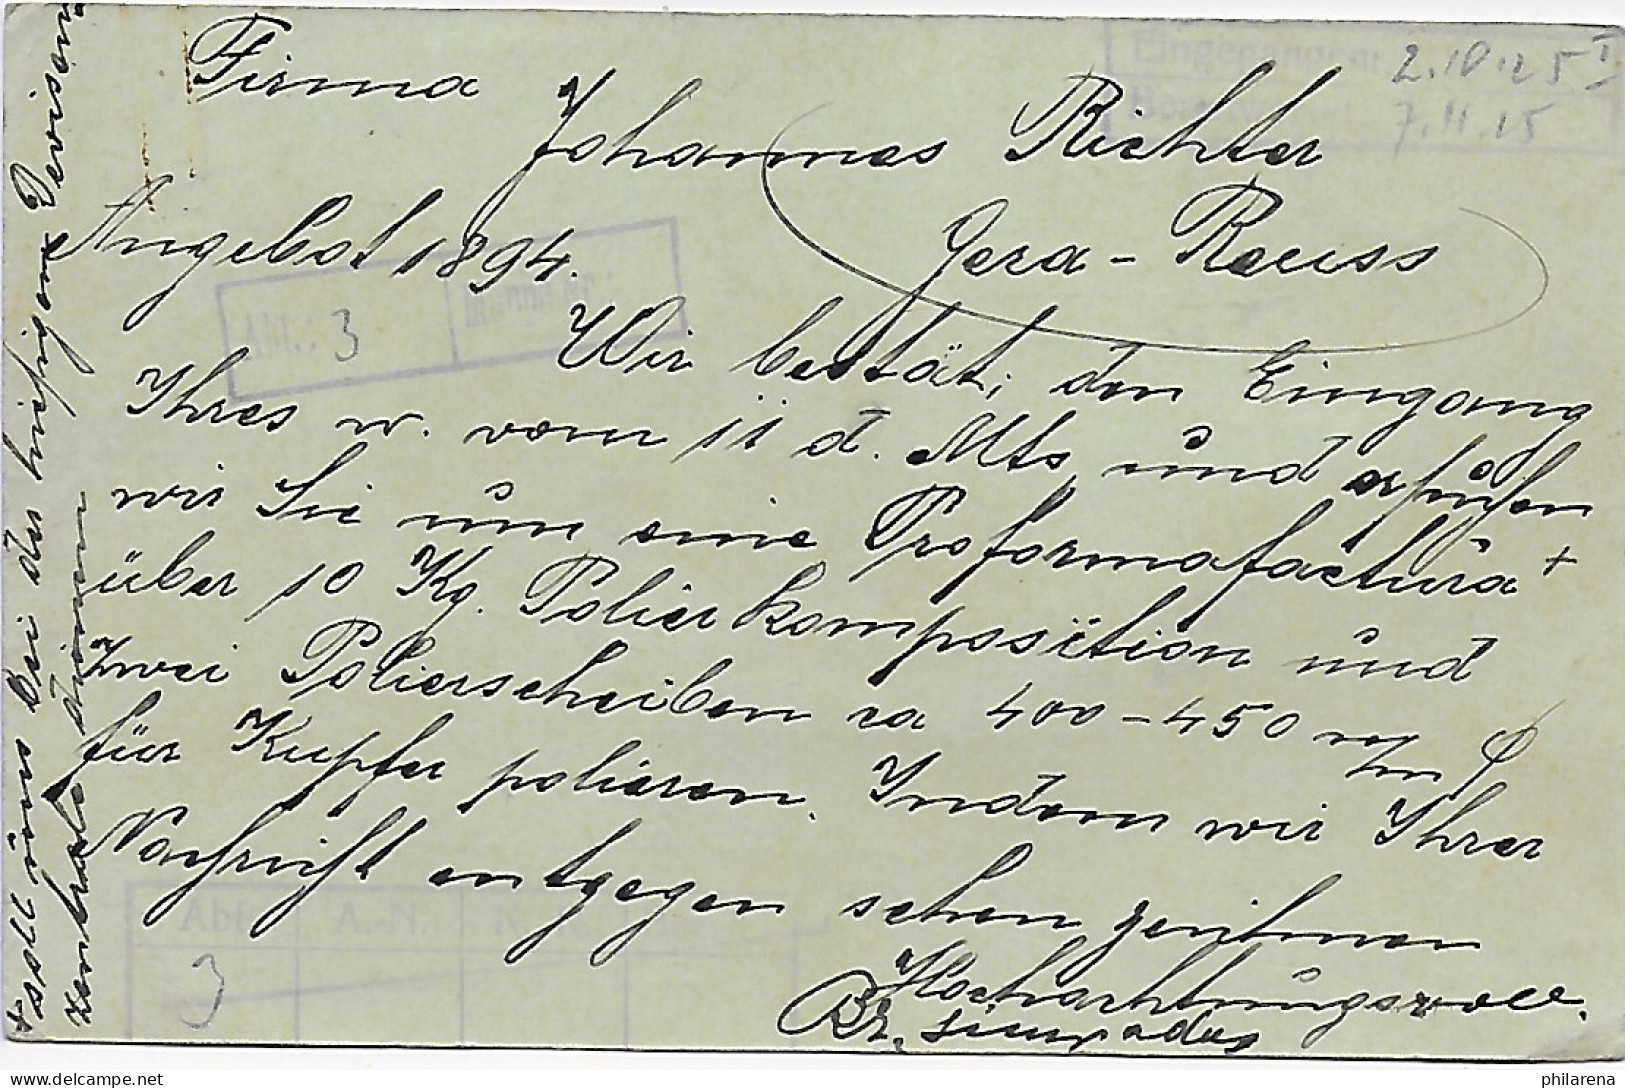 Firma
Johannes Richter
Gera-Reuss
Angebot 1894.
Wir bestät; den Eingang
Ihres w. vom 11 d. Mts, und ersuchen
wir Sie um eine Proformafactura +
über 10 Kg. Polierkomposition und
Zwei Polierscheiben ca 400-450 m/m
für Kupfer polieren. Indem wir Ihrer
Nachricht entgegen sehen zeichnen
Hochachtungsvoll.
Br.
+ soll uns bei der hiesigen Devisen
zentrale dienen
Eingegangen: 2.10.25
7.11.25
Abt.: 3
Abt. A.-N.
3
philarena.com